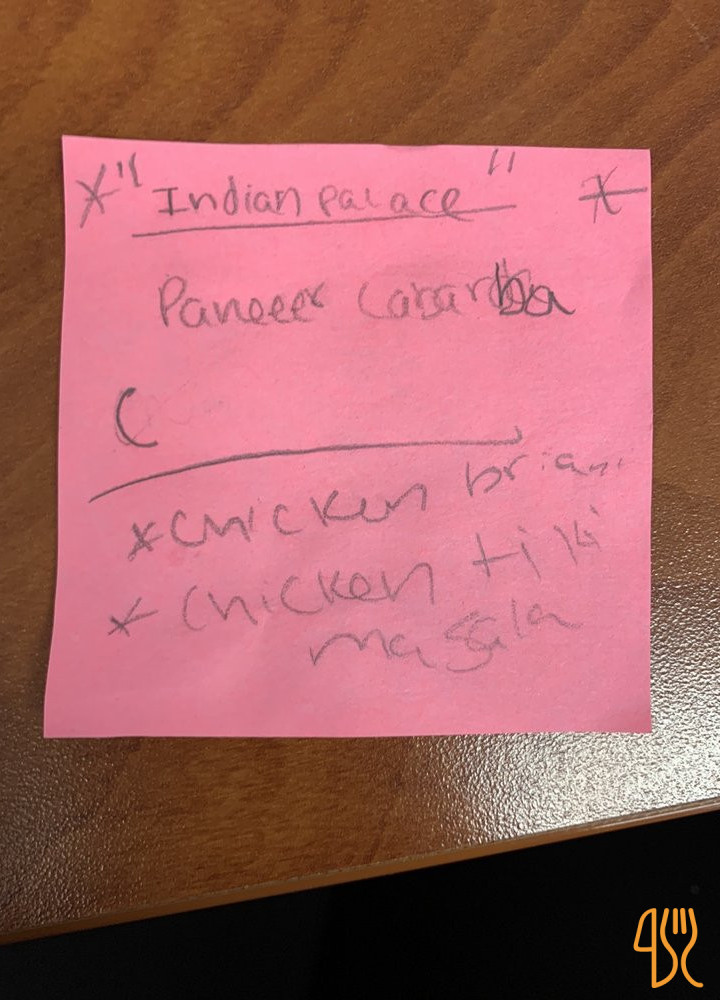 * "Indian palace" *
Paneeer
(
* Chicken briani
* Chicken tiki
masala